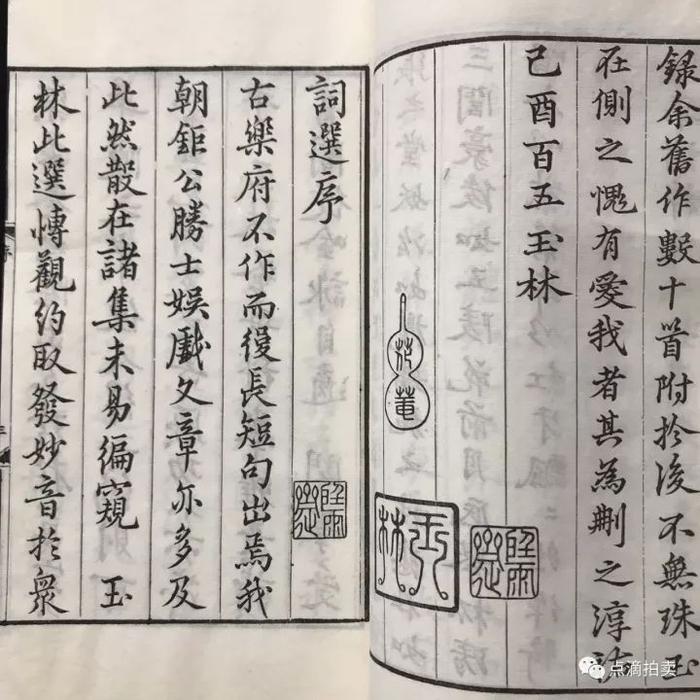 錄余舊作數十首附於後不無珠玉
在側之愧有愛我者其為刪之淳祐
己酉百五玉林
花菴
玉林
詞選序
古樂府不作而後長短句出焉我
朝鉅公勝士娛戲文章亦多及
此然散在諸集未易徧窺 玉
林此選博觀約取發妙音於衆
点滴拍卖